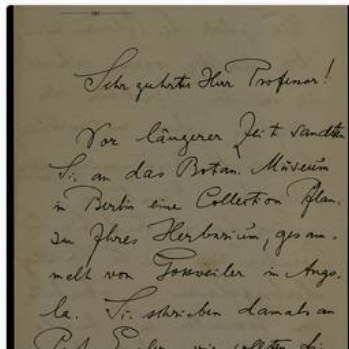 Sehr geehrter Herr Professor!
Vor längerer Zeit sandten
Sie an das Botan. Museum
in Berlin eine Collection Pflan-
zen Ihres Herbarium, gesam-
melt von Gossweiler in Ango-
la. Sie schrieben damals an
Prof. Engler, wir sollten die